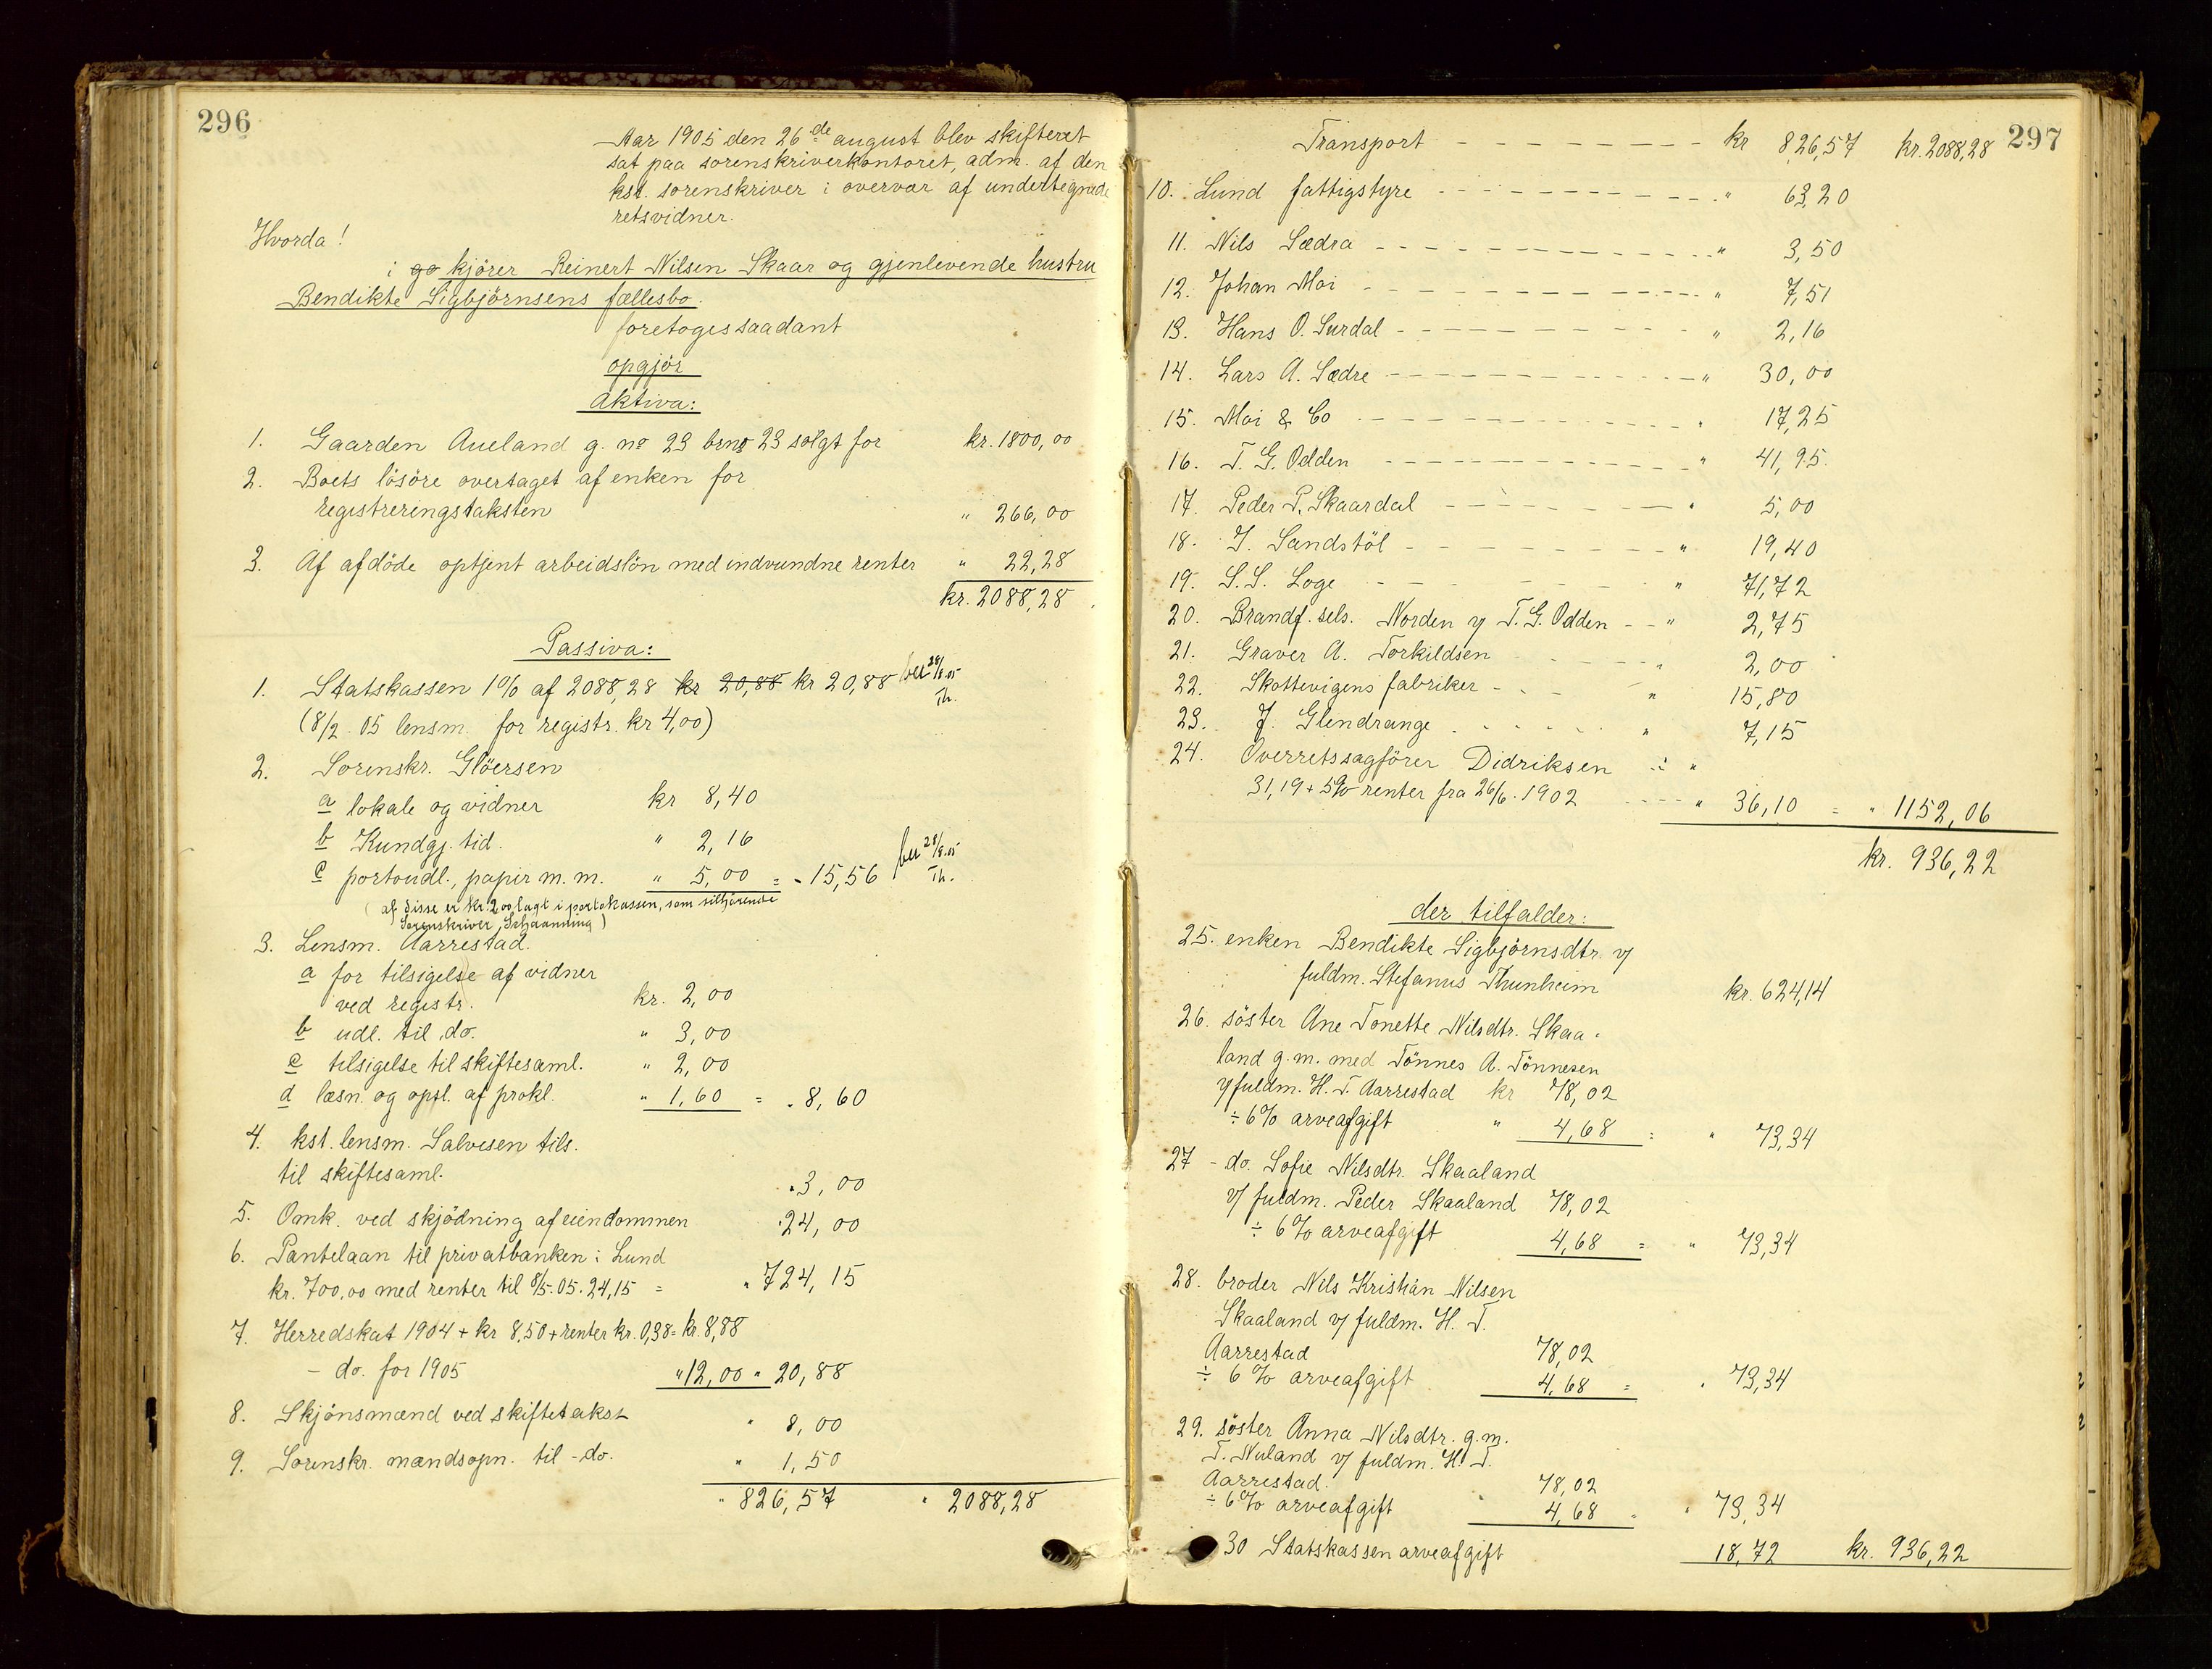 296
Aar 1905 den 26de august blev skifteret
sat paa sorenskriverkontoret, adm. af den
kst. sorenskriver i overvær af undertegnede
retsvidner.
Hvorda!
i go kjörer Reinert Nilsen Skaar og gjenlevende hustru
Bendikte Sigbjörnsens fællesbo.
foretoges saadant
opgjör
Aktiva:
1. Gaarden Aueland g. no 23 brno 23 solgt for kr. 1800,00
2. Boets lösöre overtaget af enken for
registreringstaksten " 266,00
3. Af afdöde optjent arbeidslön med indvundne renter " 22,28
kr. 2088,28.
Passiva:
1. Statskassen 1% af 2088,28 kr 20,88 kr 20,88 bet 28/8.05
Th.
(8/2 05 lensm. for registr. kr 4,00)
2. Sorenskr. Glöersen
a lokale og vidner kr 8,40
b Kundgj. tid. " 2,16
c portoudl., papir m. m. " 5,00 = " 15,56 bet 28/8.05
Th.
(af disse er kr. 2,00 lagt i portokassen, som tilhörende
Sorenskriver Schanning)
3. Lensm. Aarrestad.
a for tilsigelse af vidner
ved registr. kr. 2,00
b udl. til do. " 3,00
c tilsigelse til skiftesaml. " 2,00
d læsn. og opsl. af prokl. " 1,60 = " 8,60
4. kst. lensm. Salvesen tils.
til skiftesaml. " 3,00
5. Omk. ved skjödning af eiendommen " 24,00
6. Pantelaan til privatbanken i Lund
kr. 700,00 med renter til 8/5.05. 24,15 = " 724,15
7. Herredskat 1904 + kr 8,50 + renter kr. 0,38 = kr. 8,88
- do. for 1905 " 12,00 " 20,88
8. Skjönsmænd ved skiftetakst " 8,00
9. Sorenskr. mændsopn. til - do. " 1,50
" 826,57 " 2088,28
297
Transport kr 826,57 kr. 2088,28
10. Lund fattigstyre " 63,20
11. Nils Sædra " 3,50
12. Johan Moi " 7,51
13. Hans O. Surdal " 2,16
14. Lars A. Sædre " 30,00
15. Moi & Co " 17,25
16. T. G. Odden " 41,95
17. Peder P. Skaardal " 5,00
18. J. Sandstöl " 19,40
19. S. S. Loge " 71,72
20. Brandf. sels. Norden v/ T. G. Odden " 2,75
21. Graver A. Torkildsen " 2,00
22. Skottevigens fabriker " 15,80
23. J. Glendrange " 7,15
24. Overretssagförer Didriksen "
31,19 + 5% renter fra 26/6. 1902 " 36,10 = " 1152,06
kr. 936,22
der tilfalder:
25. enken Bendikte Sigbjörnsdtr. v/
fuldm. Stefanus Thunheim kr. 624,14
26. söster Ane Tonette Nilsdtr. Skaa-
land g. m. med Tönnes A. Tönnesen
v/ fuldm. H. T. Aarrestad kr 78,02
÷ 6% arveafgift " 4,68 = " 73,34
27 - do. Sofie Nilsdtr. Skaaland
v/ fuldm. Peder Skaaland 78,02
÷ 6% arveafgift 4,68 = " 73,34
28. broder Nils Kristian Nilsen
Skaaland v/ fuldm. H. T.
Aarrestad 78,02
÷ 6% arveafgift 4,68 = " 73,34
29. söster Anna Nilsdtr. g. m.
T. Nuland v/ fuldm. H. T.
Aarrestad. 78,02
÷ 6% arveafgift 4,68 = " 73,34
30 Statskassen arveafgift 18,72 kr. 936,22